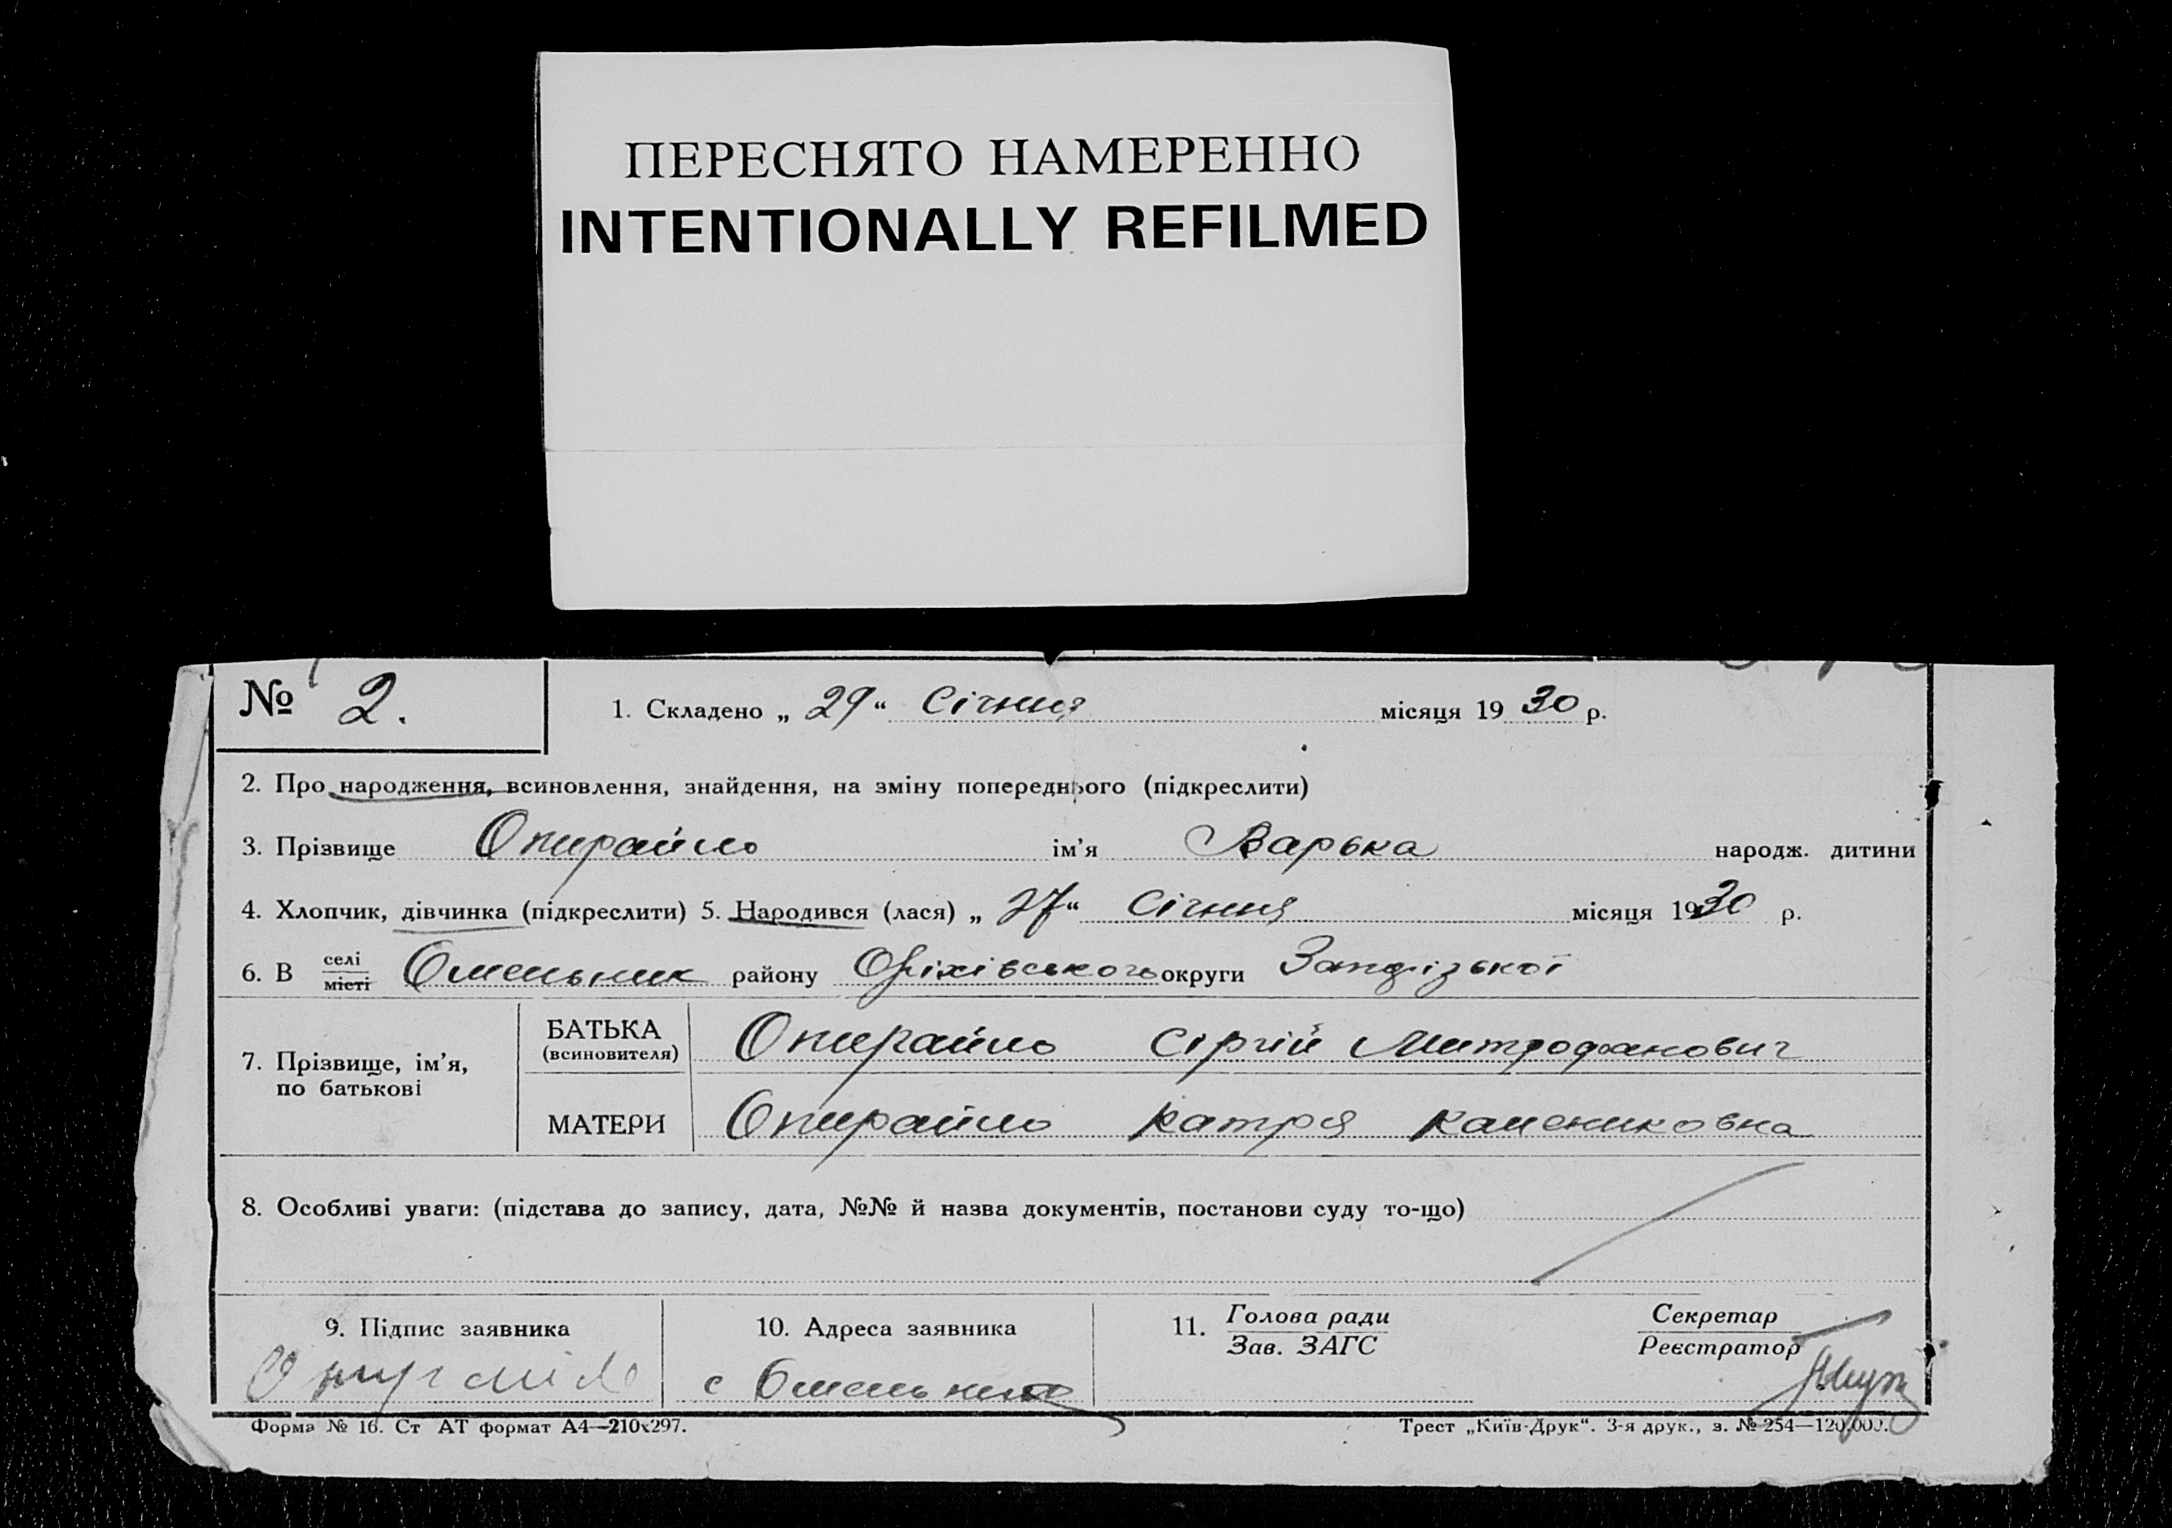 ПЕРЕСНЯТО НАМЕРЕННО
INTENTIONALLY REFILMED
№ 2.
1. Складено „ 29 “ Січня місяця 1930 р.
2. Про народження, всиновлення, знайдення, на зміну попереднього (підкреслити)
3. Прізвище Опирайло ім’я Варька народж. дитини
4. Хлопчик, дівчинка (підкреслити) 5. Народився (лася) „ 27 “ Січня місяця 1930 р.
6. В селі місті Омельник району Оріхівського округи Запорізької
7. Прізвище, ім’я, по батькові
БАТЬКА (всиновителя) Опирайло Сіргій Митрофанович
МАТЕРИ Опирайло Катря
8. Особливі уваги: (підстава до запису, дата, №№ й назва документів, постанови суду то-що)
9. Підпис заявника
10. Адреса заявника
11. Голова ради
Зав. ЗАГС
Секретар
Реєстратор
с Омельник
Форма № 16. Ст АТ формат А4—210х297.
Трест „Київ-Друк“. 3-я друк., з. № 254—120.000.